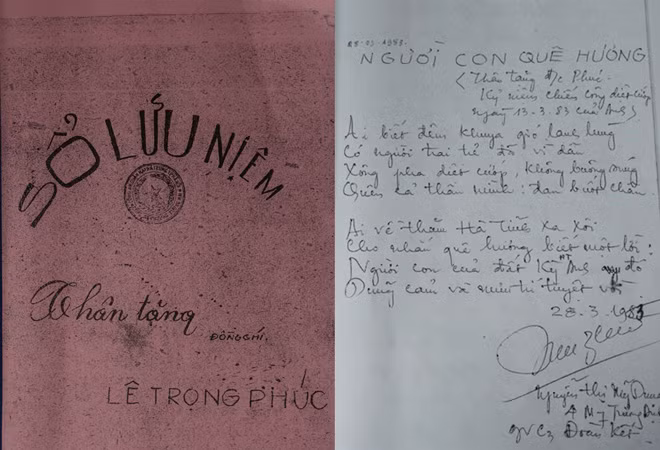 SỔ LƯU NIỆM
Thân tặng
ĐỒNG CHÍ.
LÊ TRỌNG PHÚC
28.03.1983.
NGƯỜI CON QUÊ HƯƠNG
(Thân tặng đ/c Phúc.
Kỷ niệm chiến công diệt cướp
ngày 13.3.83 của Anh)
Ai biết đêm khuya gió lạnh lùng
Có người trai trẻ đã vì dân
Xông pha diệt cướp, không buông súng
Quên cả thân mình: đạn buốt chân
Ai về thăm Hà Tĩnh xa xôi
Cho nhắn quê hương biết một lời:
Người con của đất Kỳ Anh đó
Dũng cảm và mưu trí tuyệt vời
28.3.1983
Nguyễn Thị Mỹ Dung
GVC3 Đoàn Kết